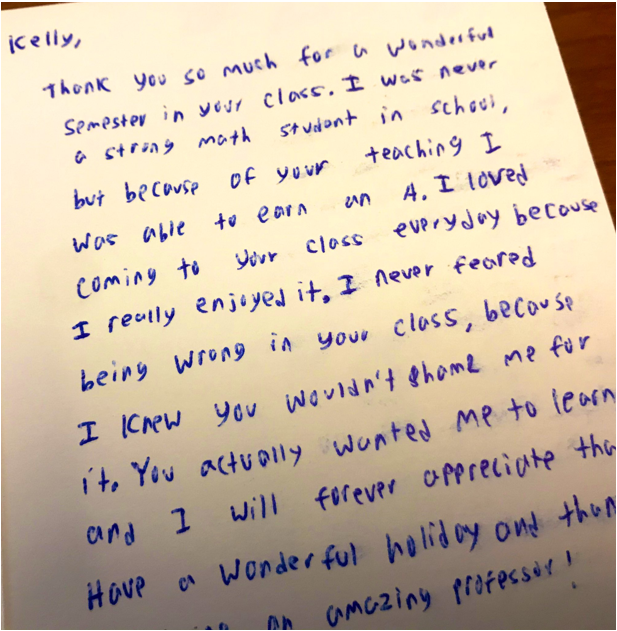 Kelly,
Thank you so much for a wonderful
semester in your class. I was never
a strong math student in school,
but because of your teaching I
was able to earn an A. I loved
coming to your class everyday because
I really enjoyed it. I never feared
being wrong in your class, because
I knew you wouldn't shame me for
it. You actually wanted me to learn
and I will forever appreciate tha
Have a wonderful holiday and than
an amazing professor!